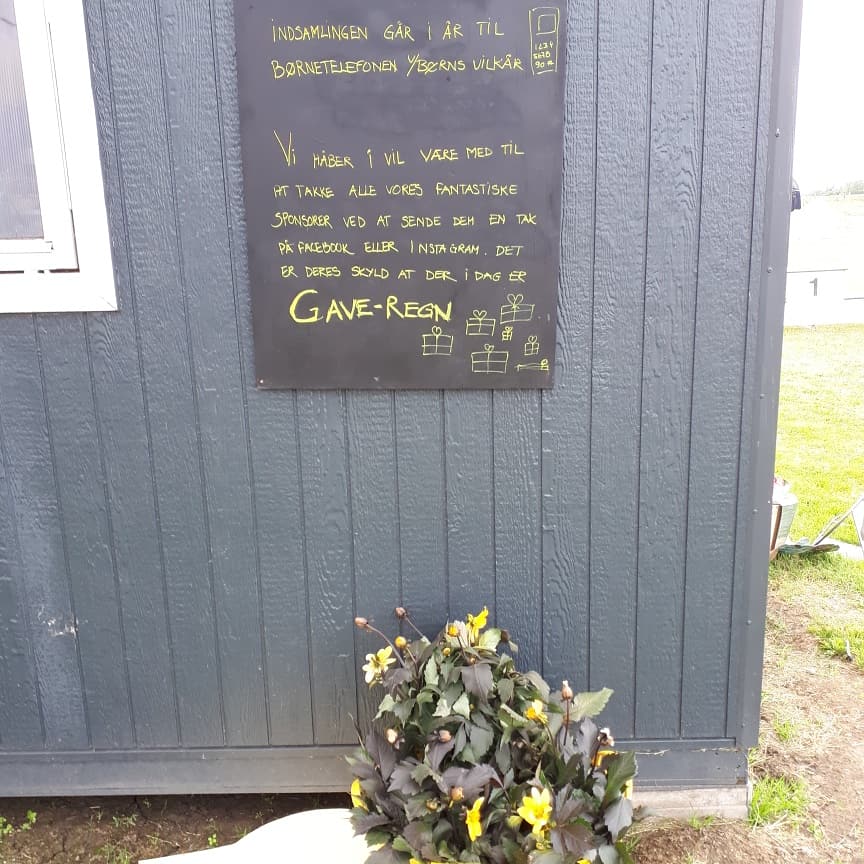 INDSAMLINGEN GÅR I ÅR TIL
BØRNETELEFONEN V/BØRNS VILKÅR
1234
5678
90
VI HÅBER I VIL VÆRE MED TIL
AT TAKKE ALLE VORES FANTASTISKE
SPONSORER VED AT SENDE DEM EN TAK
PÅ FACEBOOK ELLER INSTAGRAM. DET
ER DERES SKYLD AT DER I DAG ER
GAVE-REGN